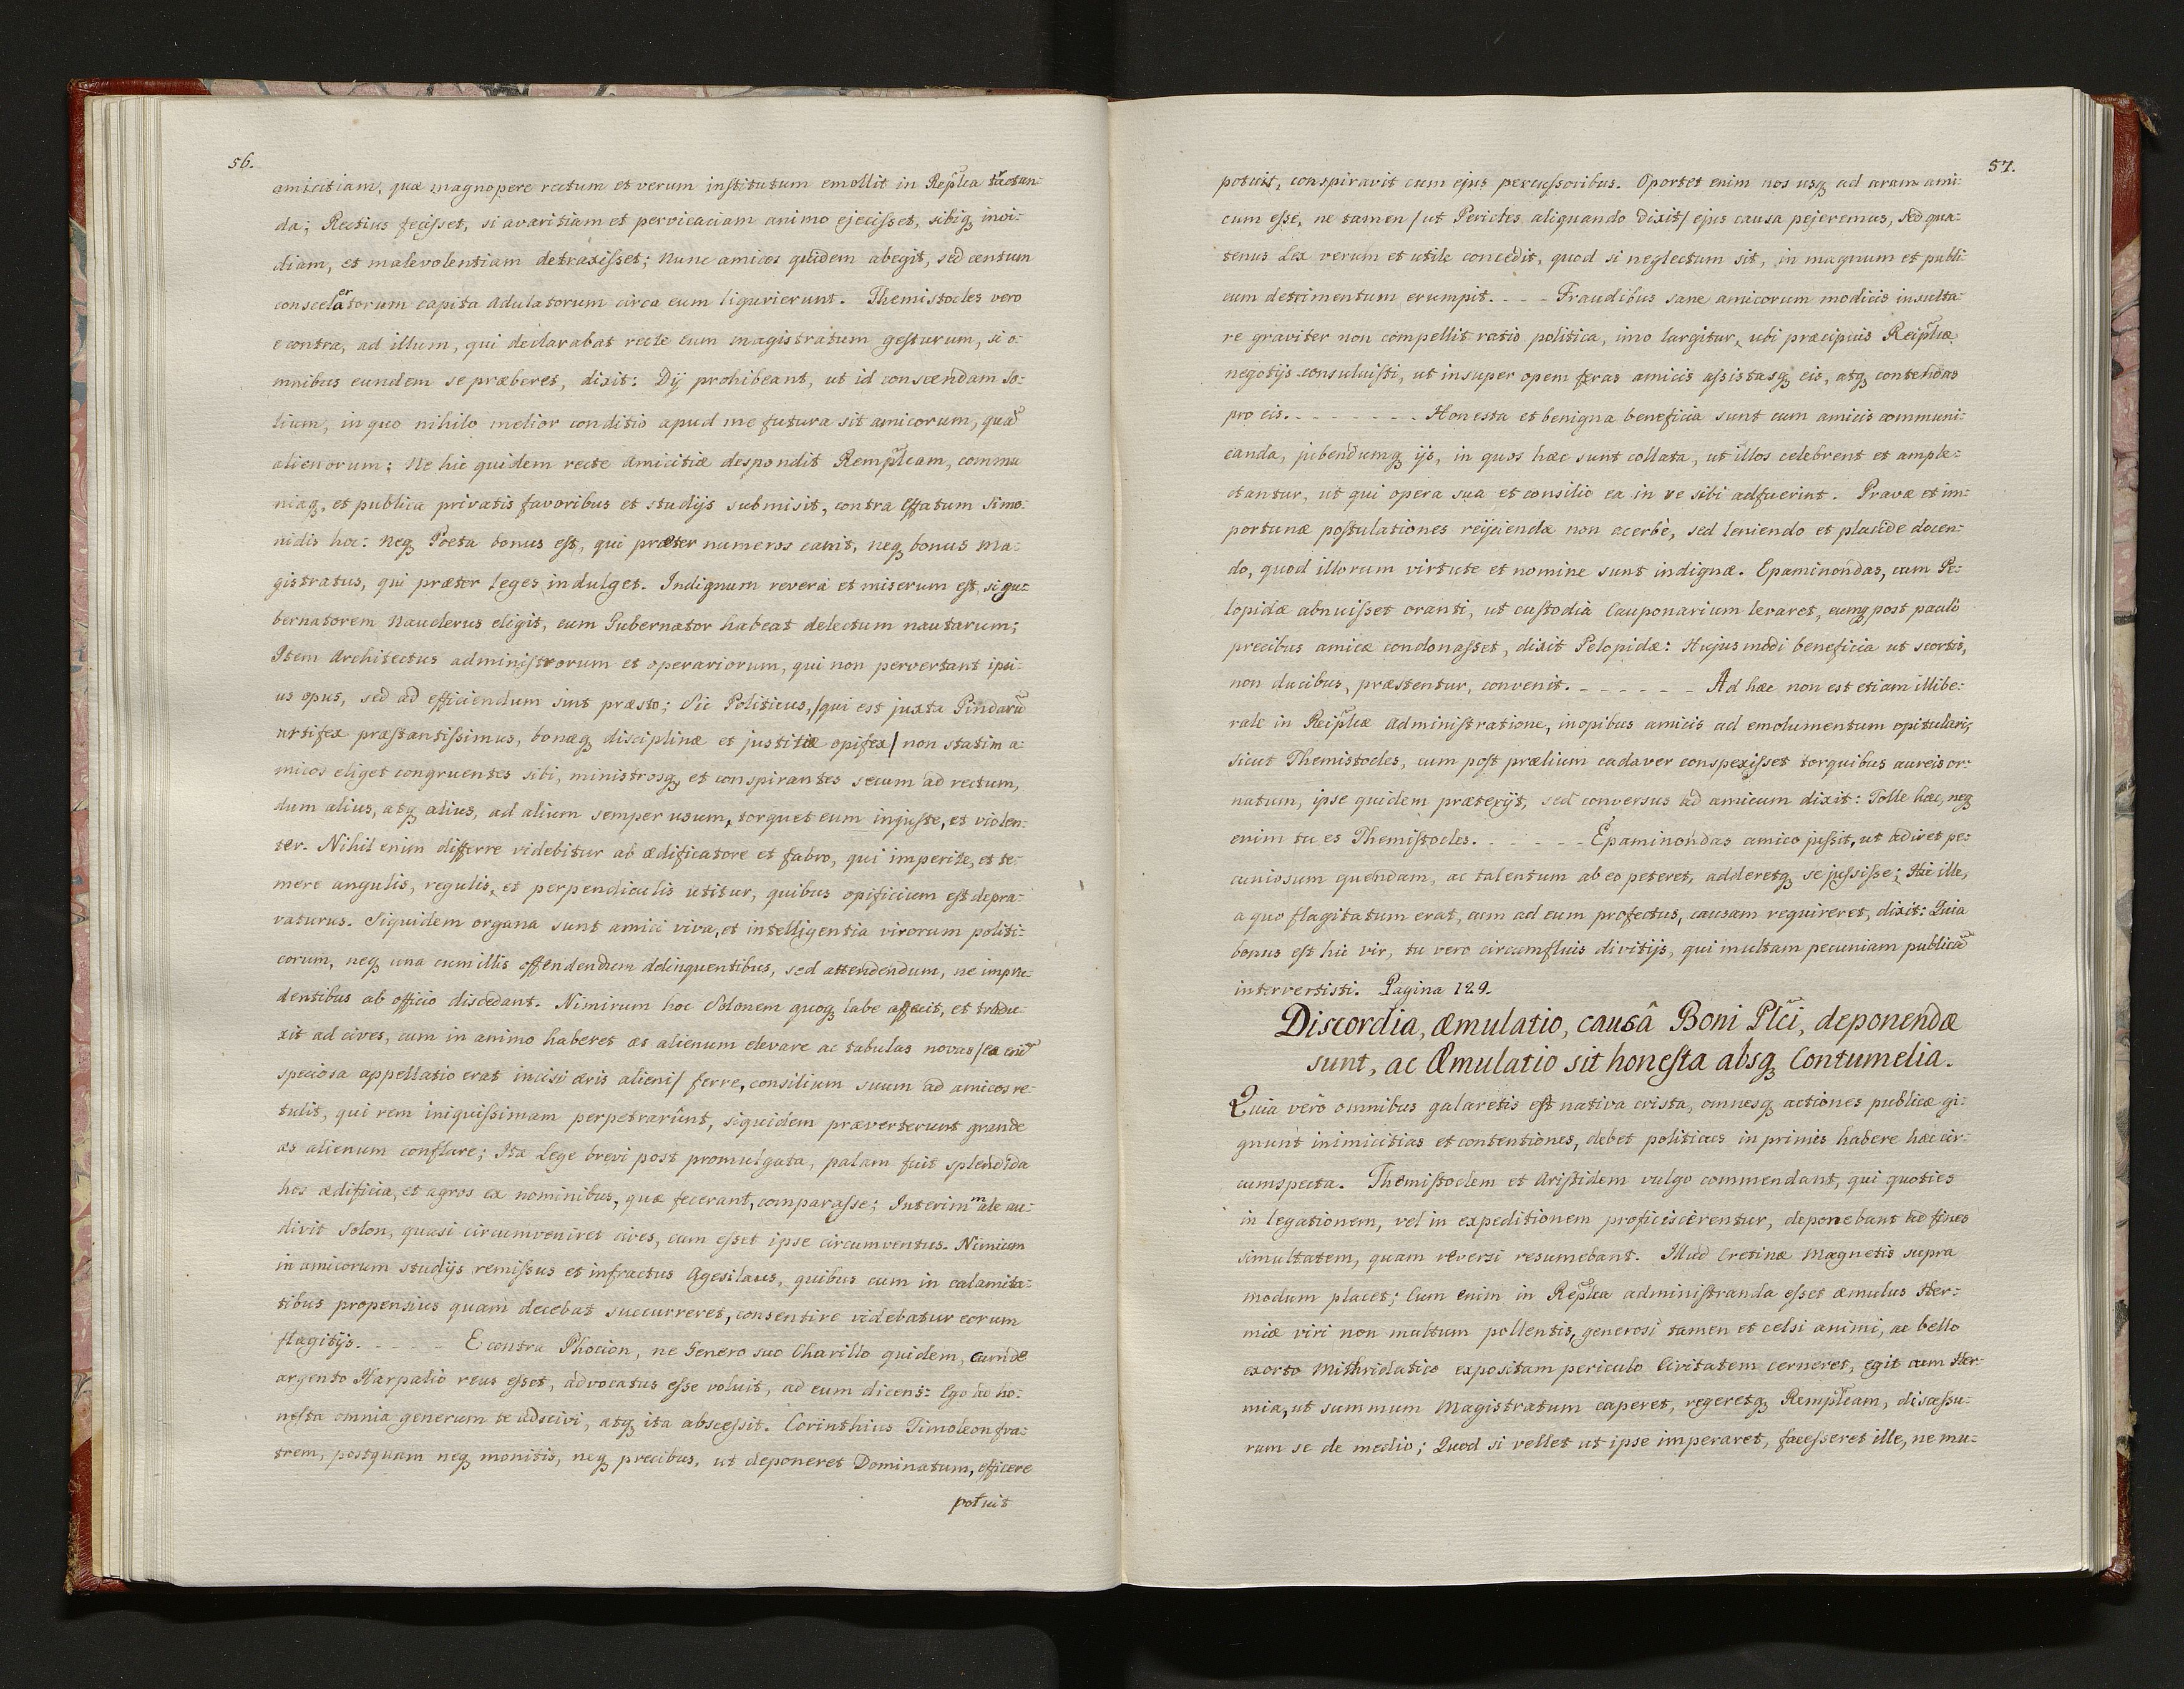 56.
amicitiam, quæ magnopere rectum et verum institutum emollit in Repl̃ca tractan-
da; Rectius fecisset, si avaritiam et pervicaciam animo ejecisset, sibiq; invi-
diam, et malevolentiam detraxisset; Nunc amicos quidem abegit, sed centum
consceleratorum capita Adulatorum circa eum ligurierunt. Themistocles vero
e contra, ad illum, qui declarabat recte eum magistratum gesturum, si o-
mnibus eundem se præberet, dixit: Dij prohibeant, ut id conscendam so-
lium, in quo nihilo melior conditio apud me futura sit amicorum, quã
alienorum; Ne hic quidem recte Amicitiæ despondit Rempl̃cam, commu
niaq, et publica privatis favoribus et studijs submisit, contra effatum Simo-
nidis hoc: Neq Poeta bonus est, qui præter numeros canit, neq bonus Ma-
gistratus, qui præter leges indulget. Indignum reverà et miserum est, si gu-
bernatorem Nauclerus eligit, eum Gubernator habeat delectum nautarum;
Item Architectus administrorum et operariorum, qui non pervertant ipsi-
us opus, sed ad efficiendum sint præsto; Sic Politicus, /qui est juxta Pindarũ
artifex præstantissimus, bonæq disciplinæ et justitiæ opifex/ non statim a-
micos eliget congruentes sibi, ministrosq, et conspirantes secum ad rectum,
dum alius, atq alius, ad alium semper usum, torquet eum injuste, et violen-
ter. Nihil enim differre videbitur ab ædificatore et fabro, qui imperite, et te-
mere angulis, regulis, et perpendiculis utitur, quibus opificium est depra-
vaturus. Siquidem organa sunt amici viva, et intelligentia virorum politi-
corum, neq una cum illis offendendum delinquentibus, sed attendendum, ne impru-
dentibus ab officio discedant. Nimirum hoc Solonem quoq labe affecit, et tradu-
xit ad cives, cum in animo haberet æs alienum elevare ac tabulas novas /ea enĩ
speciosa appellatio erat incisi æris alieni/ ferre, consilium suum ad amicos re-
tulit, qui rem iniquissimam perpetrarûnt, siquidem præverterunt grande
æs alienum conflare; Ita Lege brevi post promulgata, palam fuit splendida
hos ædificia, et agros ex nominibus, quæ fecerant, comparasse; Interim male au-
divit Solon, quasi circumveniret cives, cum esset ipse circumventus. Nimium
in amicorum studijs remissus et infractus Agesilaus, quibus cum in calamita-
tibus propensius quam decebat succurreret, consentire videbatur eorum
flagitijs. - - - - - E contra Phocion, ne Genero suo Charillo quidem, cum de
argento Harpalio reus esset, advocatus esse voluit, ad eum dicens: Ego ad ho-
nesta omnia generum te adscivi, atq ita abscessit. Corinthius Timoleon fra-
trem, postquam neq monitis, neq precibus, ut deponeret Dominatum, efficere
potuit
57.
potuit, conspiravit cum ejus percussoribus. Oportet enim nos usq ad aram ami-
cum esse, ne tamen /ut Pericles aliquando dixit/ ejus causa pejeremus, sed qua-
tenus Lex verum et utile concedit, quod si neglectum sit, in magnum et publi-
cum detrimentum erumpit. - - - Fraudibus sane amicorum modicis insulta-
re graviter non compellit ratio politica, imo largitur, ubi præcipuis Reipl̃cæ
negotijs consuluisti, ut insuper opem feras amicis assistasq eis, atq contendas
pro eis. - - - - - - - - Honesta et benigna beneficia sunt cum amicis communi-
canda, jubendumq ijs, in quos hæc sunt collata, ut illos celebrent et ample-
ctantur, ut qui opera sua et consilio ea in re sibi adfuerint. Pravæ et im-
portunæ postulationes reijciendæ non acerbè, sed leniendo et placide docen-
do, quod illorum virtute et nomine sunt indignæ. Epaminondas, cum Pe-
lopidæ abnuisset oranti, ut custodia Cauponarium levaret, eumq post pauló
precibus amicæ condonasset, dixit Pelopidæ: Hujusmodi beneficia ut scortis,
non ducibus, præstentur, convenit. - - - - - - Ad hæc non est etiam illibe-
rale in Reipl̃cæ Administratione, inopibus amicis ad emolumentum opitulari;
sicut Themistocles, cum post prælium cadaver conspexisset torquibus aureis or-
natum, ipse quidem præterijt, sed conversus ad amicum dixit: Tolle hæc, neq
enim tu es Themistocles. - - - - - Epaminondas amico jussit, ut adiret pe-
cuniosum quendam, ac talentum ab eo peteret, adderetq se jussisse; Hic ille,
a quo flagitatum erat, cum ad eum profectus, causam requireret, dixit: Quia
bonus est hic vir, tu vero circumfluis divitijs, qui multam pecuniam publicã
intervertisti. Pagina 129.
Discordia, Æmulatio, causâ Boni Pl̃ci, deponendæ
sunt, ac Æmulatio sit honesta absq Contumelia.
Quia verò omnibus galaretis est nativa crista, omnesq actiones publicæ gi-
gnunt inimicitias et contentiones, debet politicus in primis habere hæc cir-
cumspecta. Themistoclem et Aristidem vulgo commendant, qui quoties
in legationem, vel in expeditionem proficiscerentur, deponebant ad fines
simultatem, quam reversi resumebant. Illud Cretinæ Magnetis supra
modum placet; Cum enim in Repl̃ca administranda esset æmulus Her-
miæ viri non multum pollentis, generosi tamen et celsi animi, ac bello
exorto Mithridatico expositam periculo Civitatem cerneret, egit cum Her-
mia, ut summum Magistratum caperet, regeretq Rempl̃cam, discessu-
rum se de medio; Quod si vellet ut ipse imperaret, facesseret ille, ne mu-